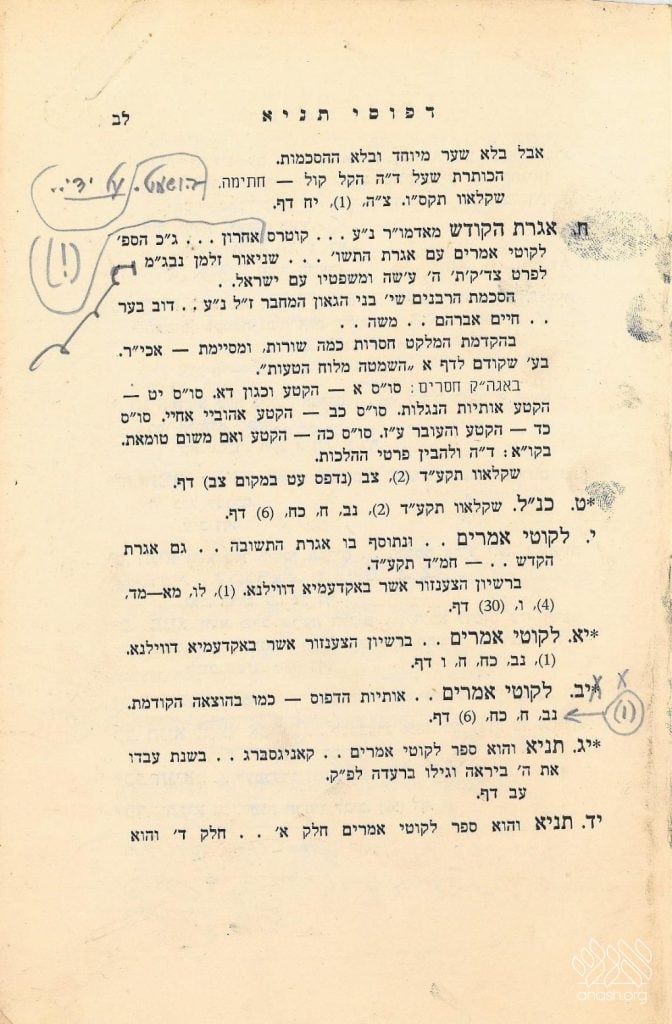 דפוסי תניא
לב
אבל בלא שער מיוחד ובלא ההסכמות.
הכותרת שעל ד״ה הקל קול — חתימה.
שקלאוו תקס״ו. צ״ה, (1), יח דף.
ח. אגרת הקודש מאדמו״ר נ״ע . . . קונטרס אחרון . . . ג״כ הספ׳
לקוטי אמרים עם אגרת התשו׳ . . . שניאור זלמן נבג״מ
לפרט צד׳ק׳ת׳ ה׳ ע׳שה ומשפטיו עם ישראל. .
הסכמת הרבנים שי׳ בני הגאון המחבר ז״ל נ״ע . . דוב בער
. . חיים אברהם . . משה . .
בהקדמת המלקט חסרות כמה שורות, ומסיימת — אכי״ר.
בע׳ שקודם לדף א „השמטה מלוח הטעות״.
באגה״ק חסרים: סו״ס א — הקטע וכגון דא. סו״ס יט —
הקטע אותיות הנגלות. סו״ס כב — הקטע אהוביי אחיי. סו״ס
כד — הקטע והעובר ע״ז. סו״ס כה — הקטע ואם משום טומאת.
בקו״א: ד״ה ולהבין פרטי ההלכות.
שקלאוו תקע״ד (2), צב (נדפס עט במקום צב) דף.
*ט. כנ״ל. שקלאוו תקע״ד (2), נב, ח, כח, (6) דף.
י. לקוטי אמרים . . ונתוסף בו אגרת התשובה . . גם אגרת
הקדש . . — חמ״ד תקע״ד.
ברשיון הצענזור אשר באקדעמיא דווילנא. (1), לו, מא—מד,
(4), ו, (30) דף.
*יא. לקוטי אמרים . . ברשיון הצענזור אשר באקדעמיא דווילנא.
(1), נב, כח, ח, ו דף.
*יב. לקוטי אמרים . . אותיות הדפוס — כמו בהוצאה הקודמת.
נב, ח, כח, (6) דף.
(1)
*יג. תניא והוא ספר לקוטי אמרים . . קאניגסברג . . בשנת עבדו
את ה׳ ביראה וגילו ברעדה לפ״ק.
עב דף.
יד. תניא והוא ספר לקוטי אמרים חלק א׳ . . חלק ד׳ והוא
anash.org